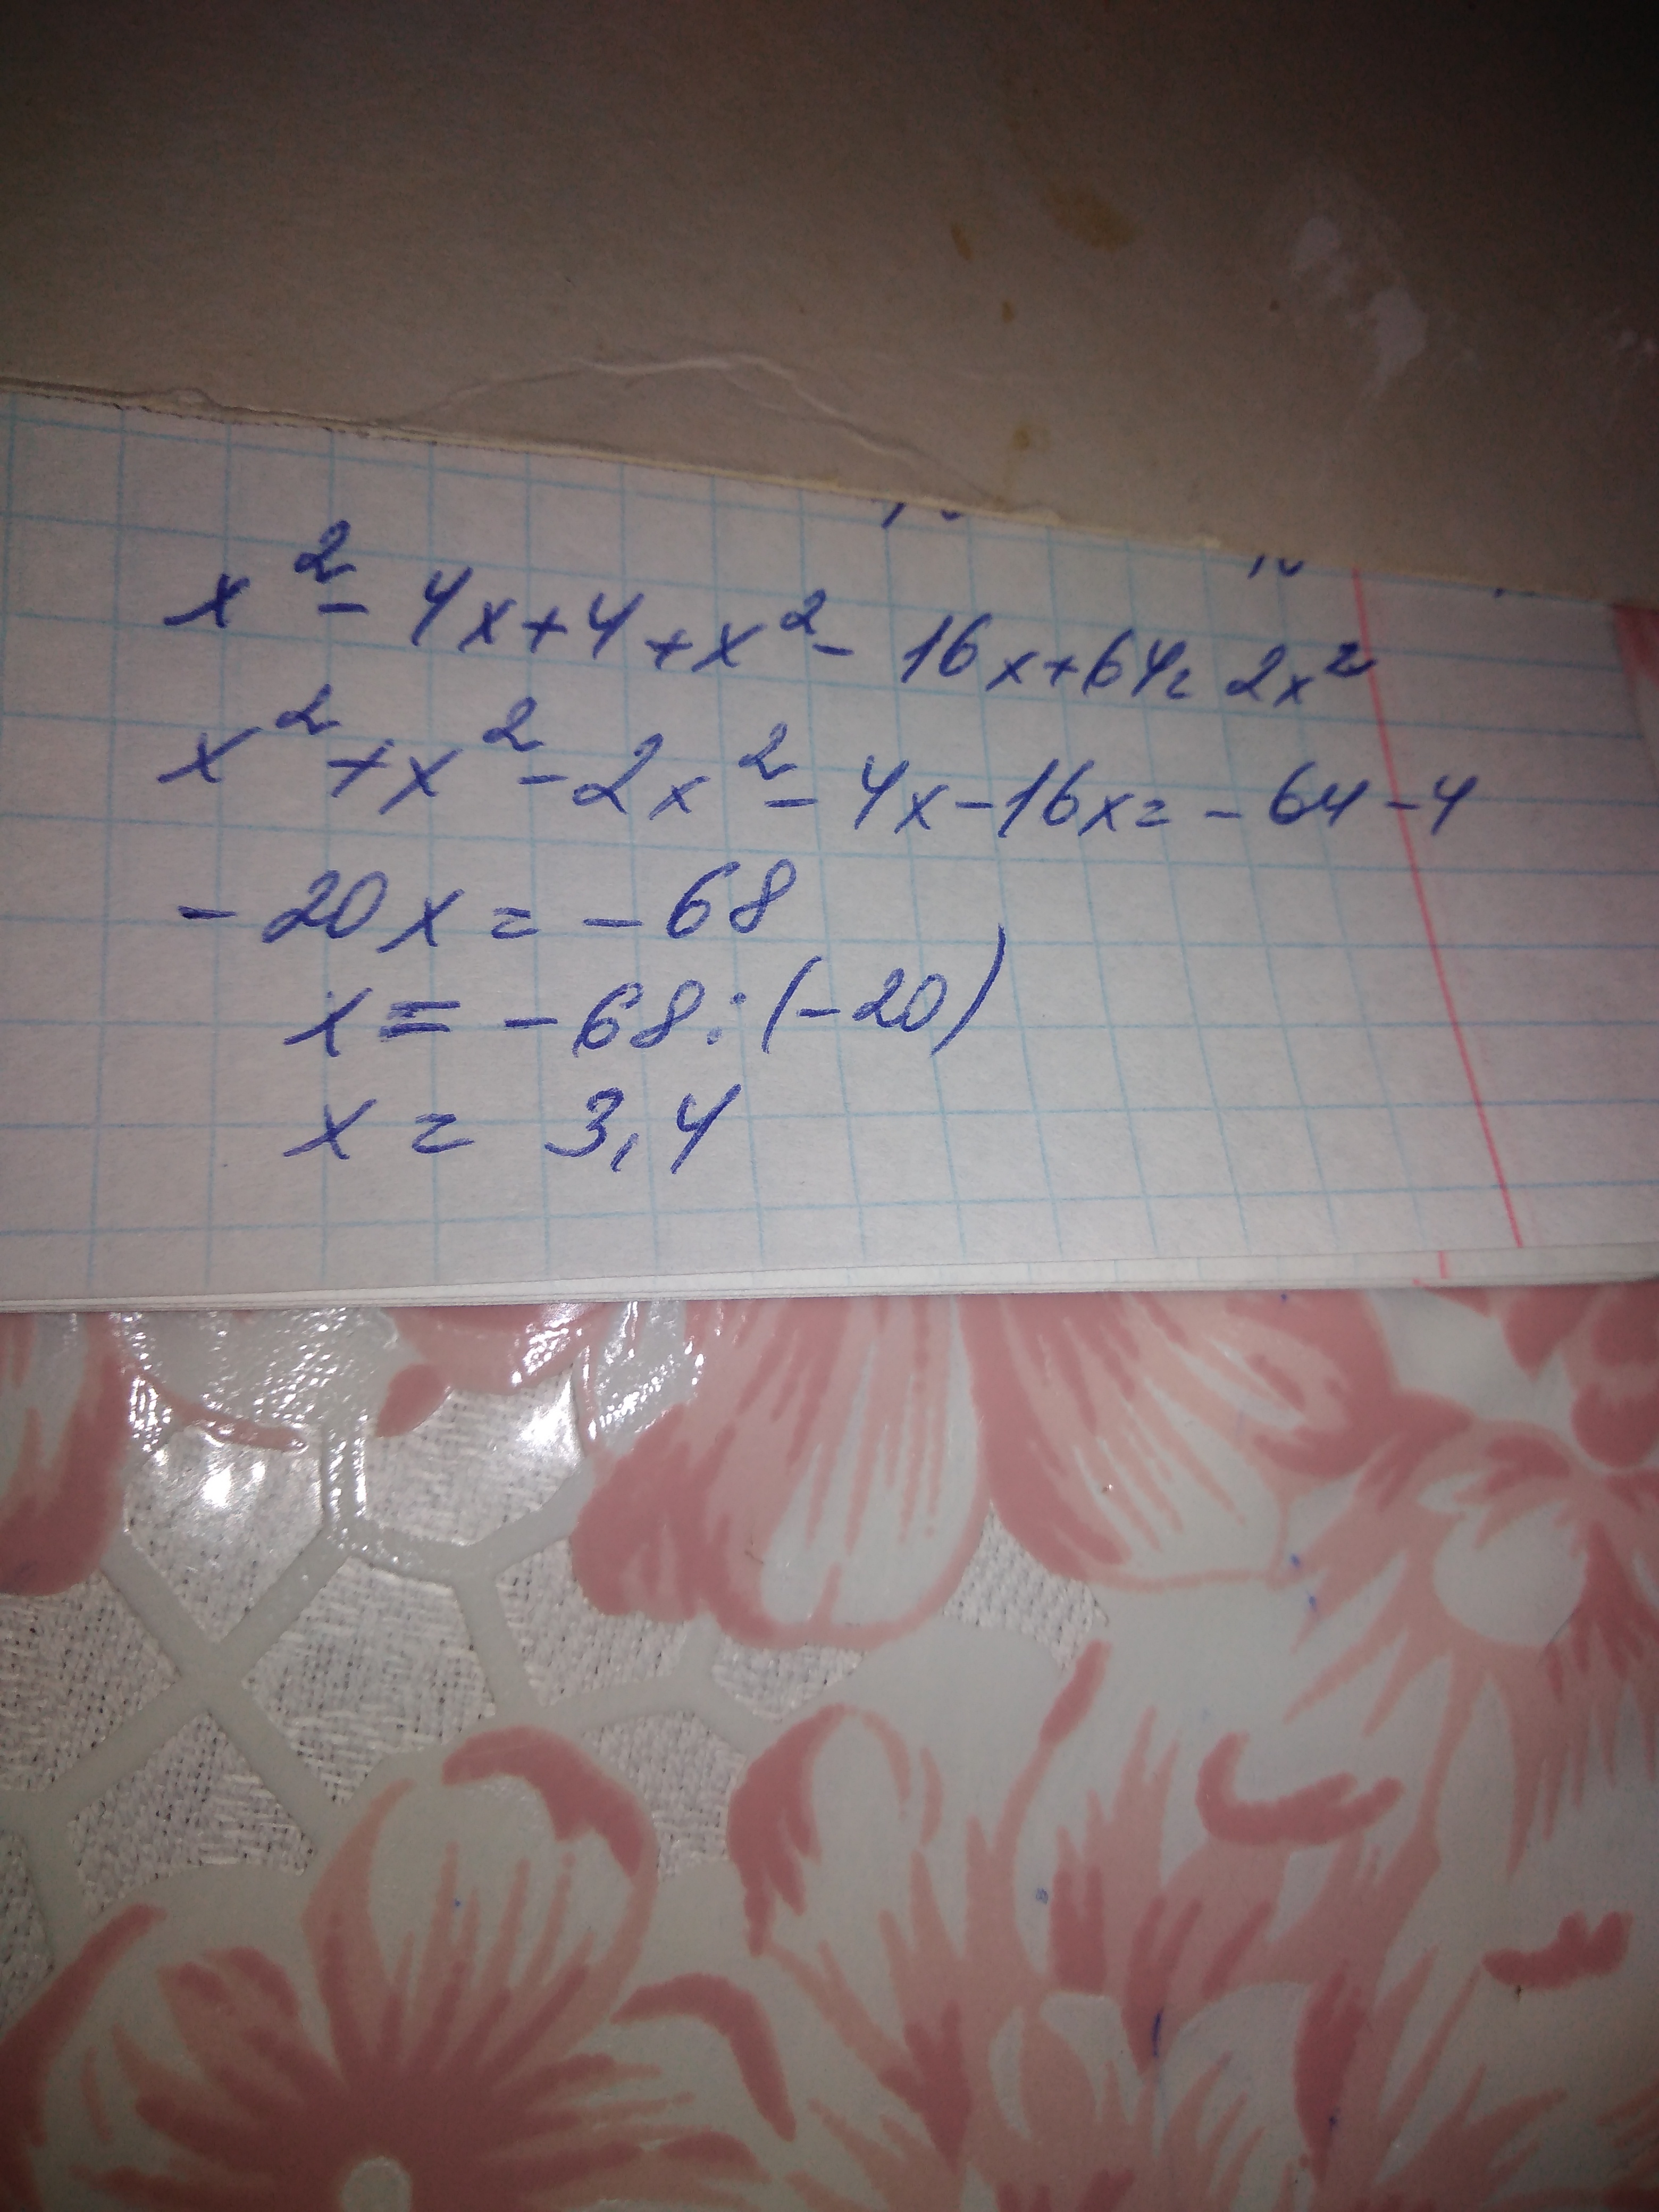 x² - 4x + 4 + x² - 16x + 64 = 2x²
x² + x² - 2x² - 4x - 16x = - 64 - 4
- 20x = - 68
x = - 68 : (-20)
x = 3,4